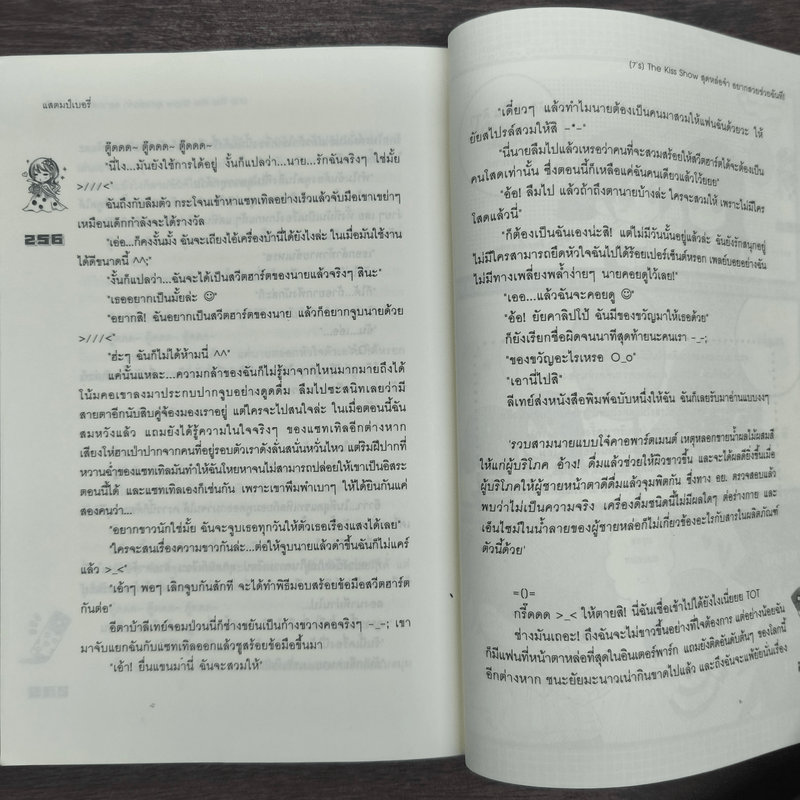 แสตมป์เบอรี่
ตู๊ดดด~ ตู๊ดดด~ ตู๊ดดด~
"นี่ไง...มันยังใช้การได้อยู่ งั้นก็แปลว่า...นาย...รักฉันจริงๆ ใช่มั้ย
>///<"
ฉันถึงกับลืมตัว กระโจนเข้าหาแซทเทิลอย่างเร็วแล้วจับมือเขาเขย่าๆ
เหมือนเด็กกำลังจะได้รางวัล
256
"เอ่อ...ก็คงงั้นมั้ง ฉันจะเถียงไอ้เครื่องบ้านี่ได้ยังไงล่ะ ในเมื่อมันใช้งาน
ได้ดีขนาดนี้ ^^;"
"งั้นก็แปลว่า...ฉันจะได้เป็นสวีตฮาร์ตของนายแล้วจริงๆ สินะ"
"เธออยากเป็นมั้ยล่ะ ☺"
"อยากสิ! ฉันอยากเป็นสวีตฮาร์ตของนาย แล้วก็อยากจูบนายด้วย
>///<"
"ฮ่ะๆ ฉันก็ไม่ได้ห้ามนี่ ^^"
แค่นั้นแหละ...ความกล้าของฉันก็ไม่รู้มาจากไหนมากมายถึงได้
โน้มคอเขาลงมาประกบปากจูบอย่างดูดดื่ม ลืมไปซะสนิทเลยว่ามี
สายตาอีกนับสิบคู่จ้องมองเราอยู่ แต่ใครจะไปสนใจล่ะ ในเมื่อตอนนี้ฉัน
สมหวังแล้ว แถมยังได้รู้ความในใจจริงๆ ของแซทเทิลอีกต่างหาก
เสียงโห่ฮาเป่าปากจากคนที่อยู่รอบตัวเราดังลั่นสนั่นหวั่นไหว แต่ริมฝีปากที่
หวานฉ่ำของแซทเทิลมันทำให้ฉันโหยหาจนไม่สามารถปล่อยให้เขาเป็นอิสระ
ตอนนี้ได้ และแซทเทิลเองก็เช่นกัน เพราะเขาพึมพำเบาๆ ให้ได้ยินกันแค่
สองคนว่า...
"อยากขาวนักใช่มั้ย ฉันจะจูบเธอทุกวันให้ตัวเธอเรืองแสงได้เลย"
"ใครจะสนเรื่องความขาวกันล่ะ...ต่อให้จูบนายแล้วดำขึ้นฉันก็ไม่แคร์
แล้ว >_<"
"เอ้าๆ พอๆ เลิกจูบกันสักที จะได้ทำพิธีมอบสร้อยข้อมือสวีตฮาร์ต
กันต่อ"
อีตาบ้าลีเทย์จอมป่วนนี่ก็ช่างขยันเป็นก้างขวางคอจริงๆ -_-; เขา
มาจับแยกฉันกับแซทเทิลออกแล้วชูสร้อยข้อมือขึ้นมา
"เอ้า! ยื่นแขนมานี่ ฉันจะสวมให้"
(7's) The Kiss Show สุดหล่อจ๋า อยากสวยช่วยฉันที!
"เดี๋ยวๆ แล้วทำไมนายต้องเป็นคนมาสวมให้แฟนฉันด้วยวะ ให้
ยัยสไปรส์สวมให้สิ -*-"
"นี่นายลืมไปแล้วเหรอว่าคนที่จะสวมสร้อยให้สวีตฮาร์ตได้จะต้องเป็น
คนโสดเท่านั้น ซึ่งตอนนี้ก็เหลือแค่ฉันคนเดียวแล้วโว้ยยย"
"อ้อ! ลืมไป แล้วถ้าถึงตานายบ้างล่ะ ใครจะสวมให้ เพราะไม่มีใคร
โสดแล้วนี่"
"ก็ต้องเป็นฉันเองน่ะสิ! แต่ไม่มีวันนั้นอยู่แล้วล่ะ ฉันยังรักสนุกอยู่
ไม่มีใครสามารถยึดหัวใจฉันไปได้ร้อยเปอร์เซ็นต์หรอก เพลย์บอยอย่างฉัน
ไม่มีทางเพลี่ยงพล้ำง่ายๆ นายคอยดูไว้เลย!"
"เออ...แล้วฉันจะคอยดู ☺"
"อ้อ! ยัยคาลิปโป้ ฉันมีของขวัญมาให้เธอด้วย"
ก็ยังเรียกชื่อผิดจนนาทีสุดท้ายนะคนเรา -_-;
"ของขวัญอะไรเหรอ O_o"
"เอานี่ไปสิ"
ลีเทย์ส่งหนังสือพิมพ์ฉบับหนึ่งให้ฉัน ฉันก็เลยรับมาอ่านแบบงงๆ
'รวบสามนายแบบโจ๋คาอพาร์ตเมนต์ เหตุหลอกขายน้ำผลไม้ผสมสี
ให้แก่ผู้บริโภค อ้าง! ดื่มแล้วช่วยให้ผิวขาวขึ้น และจะได้ผลดียิ่งขึ้นเมื่อ
ผู้บริโภคให้ผู้ชายหน้าตาดีดื่มแล้วจุมพิตกัน ซึ่งทาง อย. ตรวจสอบแล้ว
พบว่าไม่เป็นความจริง เครื่องดื่มชนิดนี้ไม่มีผลใดๆ ต่อร่างกาย และ
เอ็นไซม์ในน้ำลายของผู้ชายหล่อก็ไม่เกี่ยวข้องอะไรกับสารในผลิตภัณฑ์
ตัวนี้ด้วย'
=()=
กรี๊ดดด >_< ให้ตายสิ! นี่ฉันเชื่อเข้าไปได้ยังไงเนี่ยยย TOT
ช่างมันเถอะ! ถึงฉันจะไม่ขาวขึ้นอย่างที่ใจต้องการ แต่อย่างน้อยฉัน
ก็มีแฟนที่หน้าตาหล่อที่สุดในอินเตอร์พาร์ก แถมยังติดอันดับต้นๆ ของโลกนี้
อีกต่างหาก ชนะยัยมะนาวเน่ากินขาดไปแล้ว และถึงฉันจะแพ้ยัยนั่นเรื่อง